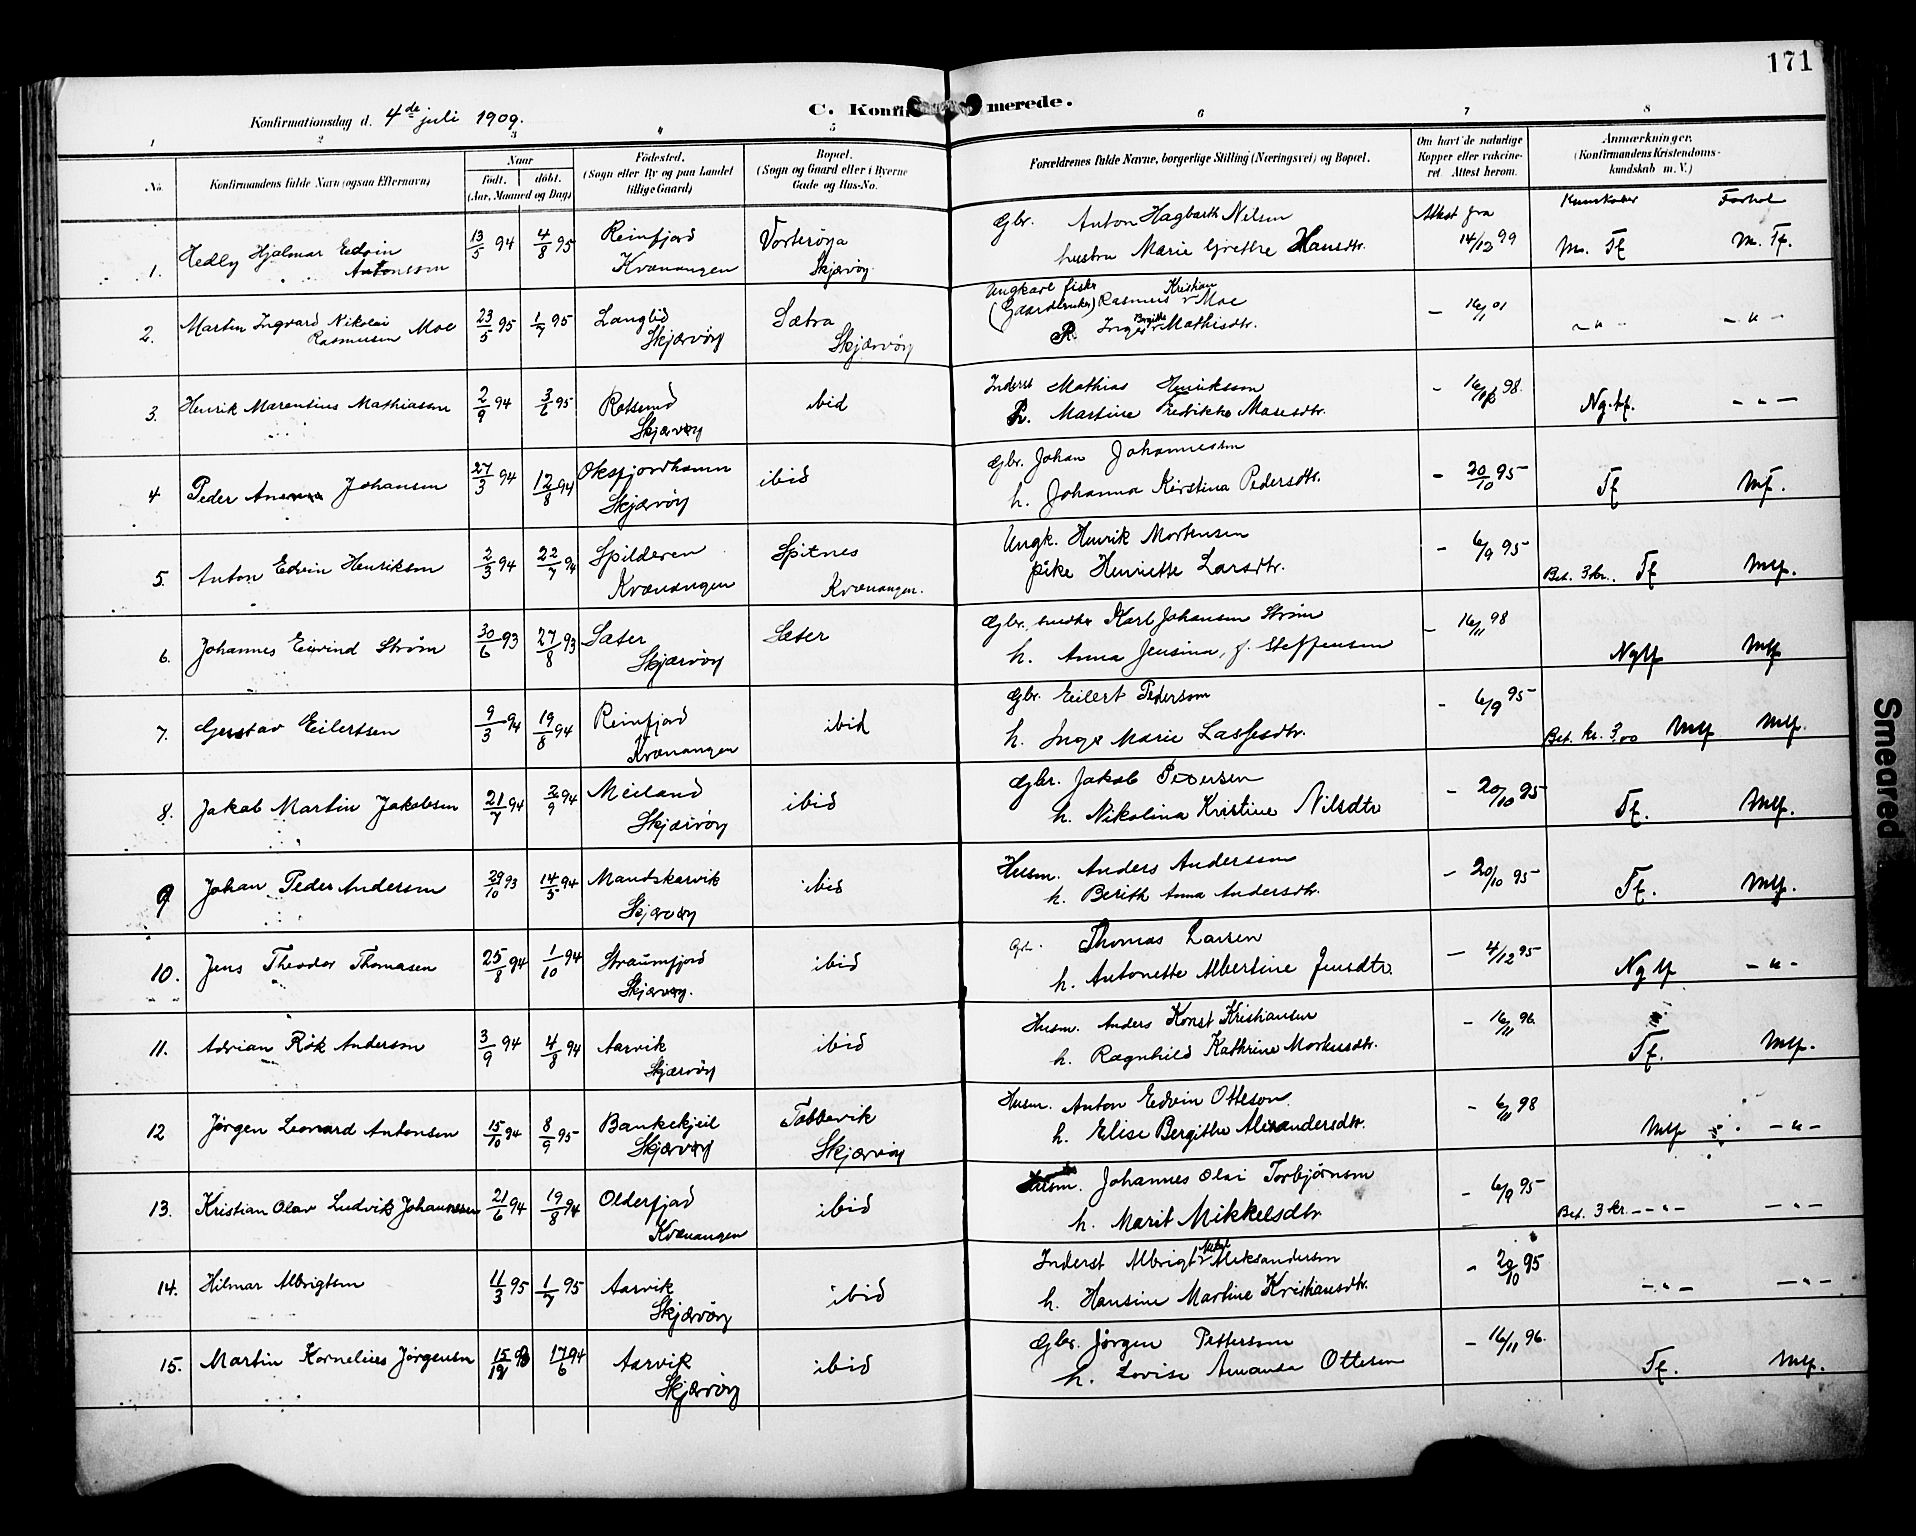 171
Konfirmationsdag d. 4de juli 1909.
C. Konfirmerede.
1 2 3 4 5 6 7 8
No. Konfirmandens fulde Navn (ogsaa Efternavn)
Naar
født. døbt.
(Aar, Maaned og Dag)
Fødested.
(Sogn eller By og paa Landet
tillige Gaard)
Bopæl.
(Sogn og Gaard eller i Byerne
Gade og Hus-No.
Forældrenes fulde Navne, borgerlige Stilling (Næringsvei) og Bopæl.
Om havt de naturlige
Kopper eller vakcine-
ret. Attest herom.
Anmærkninger.
(Konfirmandens Kristendoms-
kundskab m. V.)
Kunskaber Forhol
1. Hedly Hjalmar Edvin Antonsen 13/5 94 4/8 95 Reinfjord Kvænangen Vorterøya Skjærvøy
Gbr. Anton Hagbarth Nilsen
hustru Marie Grethe Hansdtr.
Attest fra 14/12 99 M. Tf M. Tf.
2. Martin Ingvard Nikolai Rasmussen Moe 23/5 95 1/7 95 Langlid Skjærvøy Sætra Skjærvøy
Ungkarl fisker
(Gaardbruker) Rasmus Kristian Moe
P. Inger Bergitte Mathisdtr.
- 16/1 01 - " - - " -
3. Henrik Marentius Mathiassen 2/9 94 3/6 95 Rotsund Skjærvøy ibid
Inderst Mathias Henriksson
h. Martine Fredrikke Masesdtr.
- 98. Ng. tf. - " -
4 Peder Johansen 27/3 94 12/8 94 Oksfjordhamn Skjærvøy ibid
Gbr. Johan Johannessen
h. Johanna Kirstina Pedersdtr.
- 20/10 95 Tf Mf.
5. Anton Edvin Henriksen 2/3 94 22/7 94 Spilderen Kvænangen Spitnes Kvænangen.
Ungk. Henrik Mortensen
pike Henriette Larsdtr.
- 6/9 95 Bet. 3 kr. Tf Mtf.
6. Johannes Eivind Strøm 30/6 93 27/8 93 Sæter Skjærvøy Sæter
Gbr. smed Karl Johansen Strøm
h. Anna Jensina, f. Steffensen
- 16/11 98 Ngtf Mtf
7. Gustav Eilertsen 9/3 94 19/8 94 Reinfjord Kvænangen ibid
Gbr. Eilert Pedersen
h. Inge Marie Lassesdtr.
- 6/9 95 Bet. kr. 3.00 Mtf Mtf.
8. Jakob Martin Jakobsen 21/7 94 2/9 94 Meiland Skjærvøy ibid
Gbr. Jakob Pedersen
h. Nikolina Kristine Nilsdtr
- 20/10 95 Tf. Mtf.
9 Johan Peder Andersen 29/10 93 14/5 94 Mandskarvik Skjærvøy ibid
Husm. Anders Anderssen
h. Berith Anna Andersdtr.
- 20/10 95 Tf. Mtf.
10. Jens Theodor Thomasen 25/8 94 1/10 94 Straumfjord Skjærvøy. ibid
Gbr. Thomas Larsen
h. Antonette Albertine Jensdtr.
- 4/12 95 Ngtf - " -
11. Adrian Røk Andersen 3/9 94 4/8 94 Aarvik Skjærvøy ibid
Husm. Anders Konst Kristiansen
h. Ragnhild Kathrine Markusdtr.
- 16/11 96 Tf. Mtf.
12 Jørgen Leonard Antonsen 15/10 94 8/9 95 Bankekjeil Skjærvøy Tobbevik Skjærvøy
Husm. Anton Edvin Otteson
h. Elise Bergithe Alexandersdtr.
- 6/11 98 Mtf - " -
13. Kristian Olav Ludvik Johannesen 21/6 94 19/8 94 Olderfjord Kvænangen ibid
Husm. Johannes Olai Torbjørnsen
h. Marit Mikkelsdtr
- 6/9 95 Bet. 3 kr. - " - - " -
14. Hilmar Albrigtsen 11/3 95 1/7 95 Aarvik Skjærvøy ibid
Inderst Albrigt Aleksandersen
h. Hansine Martine Kristiansdtr.
- 20/10 95 - " - - " -
15. Martin Kornelius Jørgensen 15/12 93 17/6 94 Aarvik Skjærvøy ibid
Gbr. Jørgen Pettersen
h. Lovise Amanda Ottesen
- 16/11 96. Tf. Mtf.
Smeared